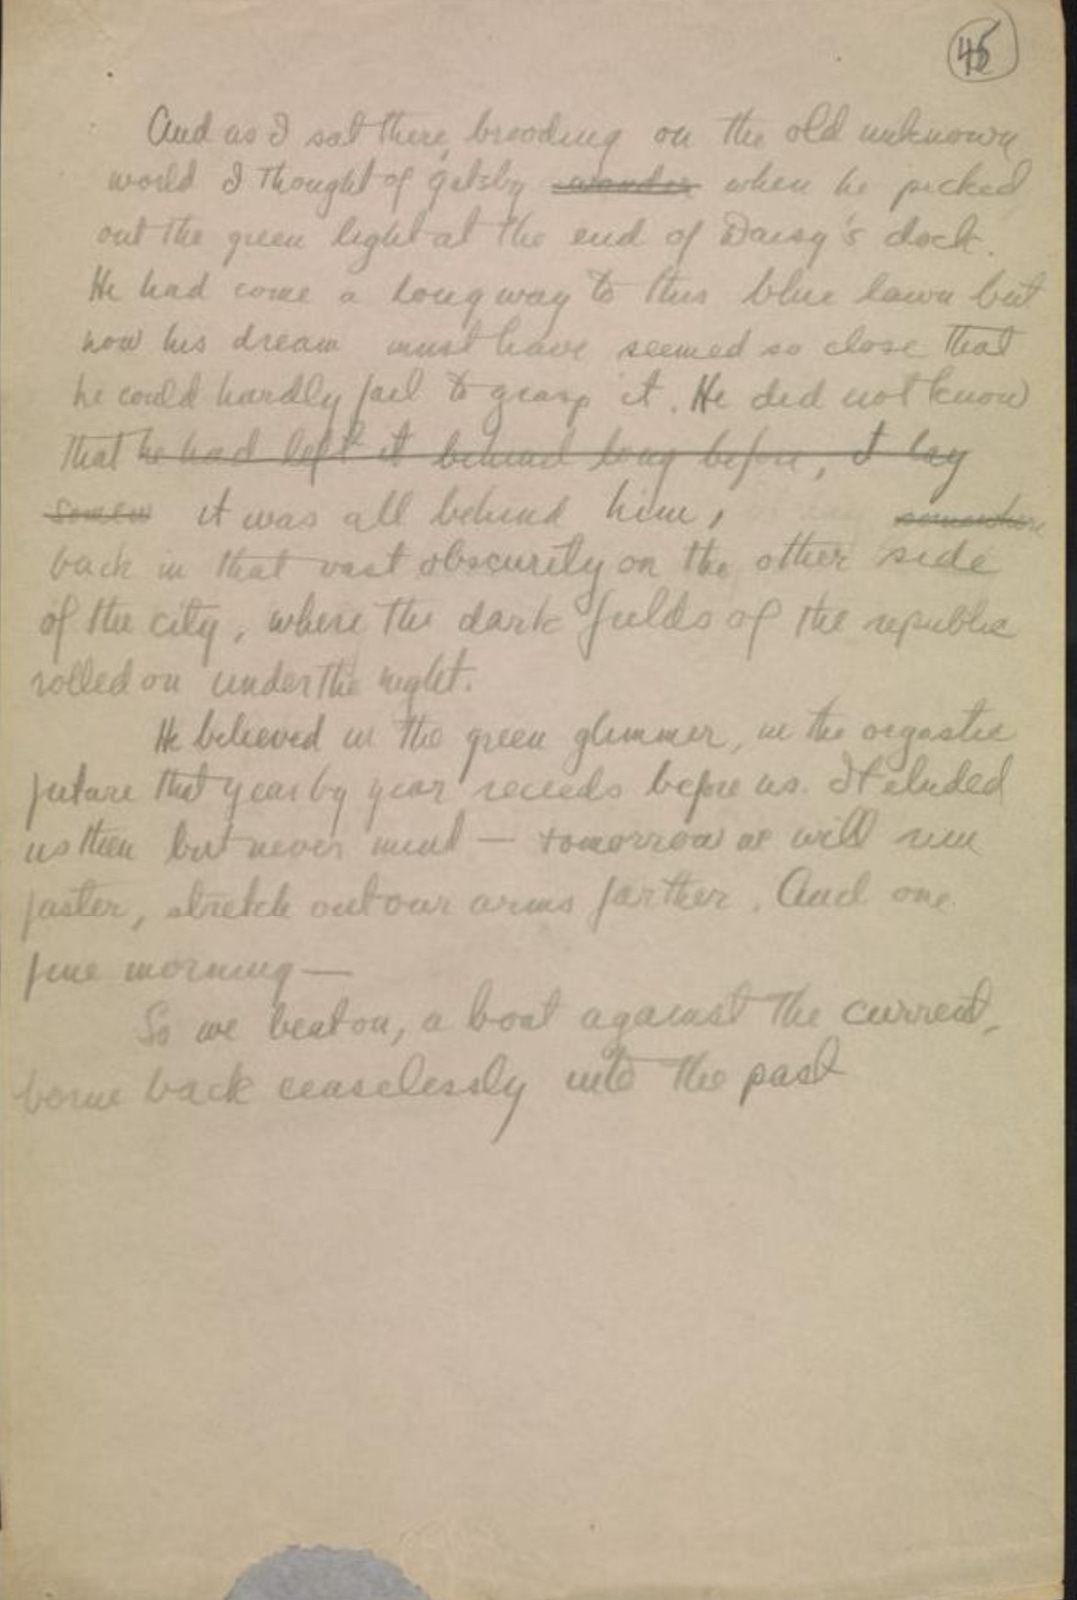 45
And as I sat there, brooding on the old unknown
world I thought of Gatsby wonder when he picked
out the green light at the end of Daisy's dock.
He had come a long way to this blue lawn but
now his dream must have seemed so close that
he could hardly fail to grasp it. He did not know
that he had left it behind long before, it lay
somew it was all behind him, somewhere
back in that vast obscurity on the other side
of the city, where the dark fields of the republic
rolled on under the night.
He believed in the green glimmer, in the orgastic
future that year by year recedes before us. It eluded
us then but never mind — tomorrow we will run
faster, stretch out our arms farther. And one
fine morning —
So we beat on, a boat against the current,
borne back ceaselessly into the past